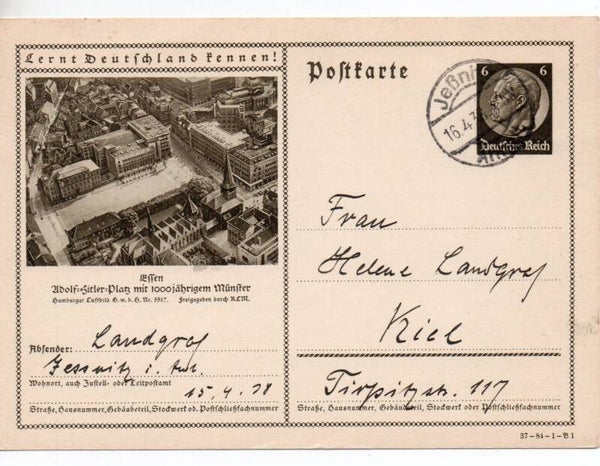 Lernt Deutschland kennen!
Essen
Adolf-Hitler-Platz mit 1000jährigem Münster
Hamburger Luftbild G. m. b. H. Nr. 5517. Freigegeben durch RLM.
Absender: Landgraf
Jessnitz i. Anh.
Wohnort, auch Zustell- oder Leitpostamt
15. 4. 38
Straße, Hausnummer, Gebäudeteil, Stockwerk od. Postschließfachnummer
Postkarte
Jeßni
16.4.3
Anh
6 6
Deutsches Reich
Frau
Helene Landgraf
Kiel
Tirpitzstr. 117
Straße, Hausnummer, Gebäudeteil, Stockwerk oder Postschließfachnummer
37-84-1-B1